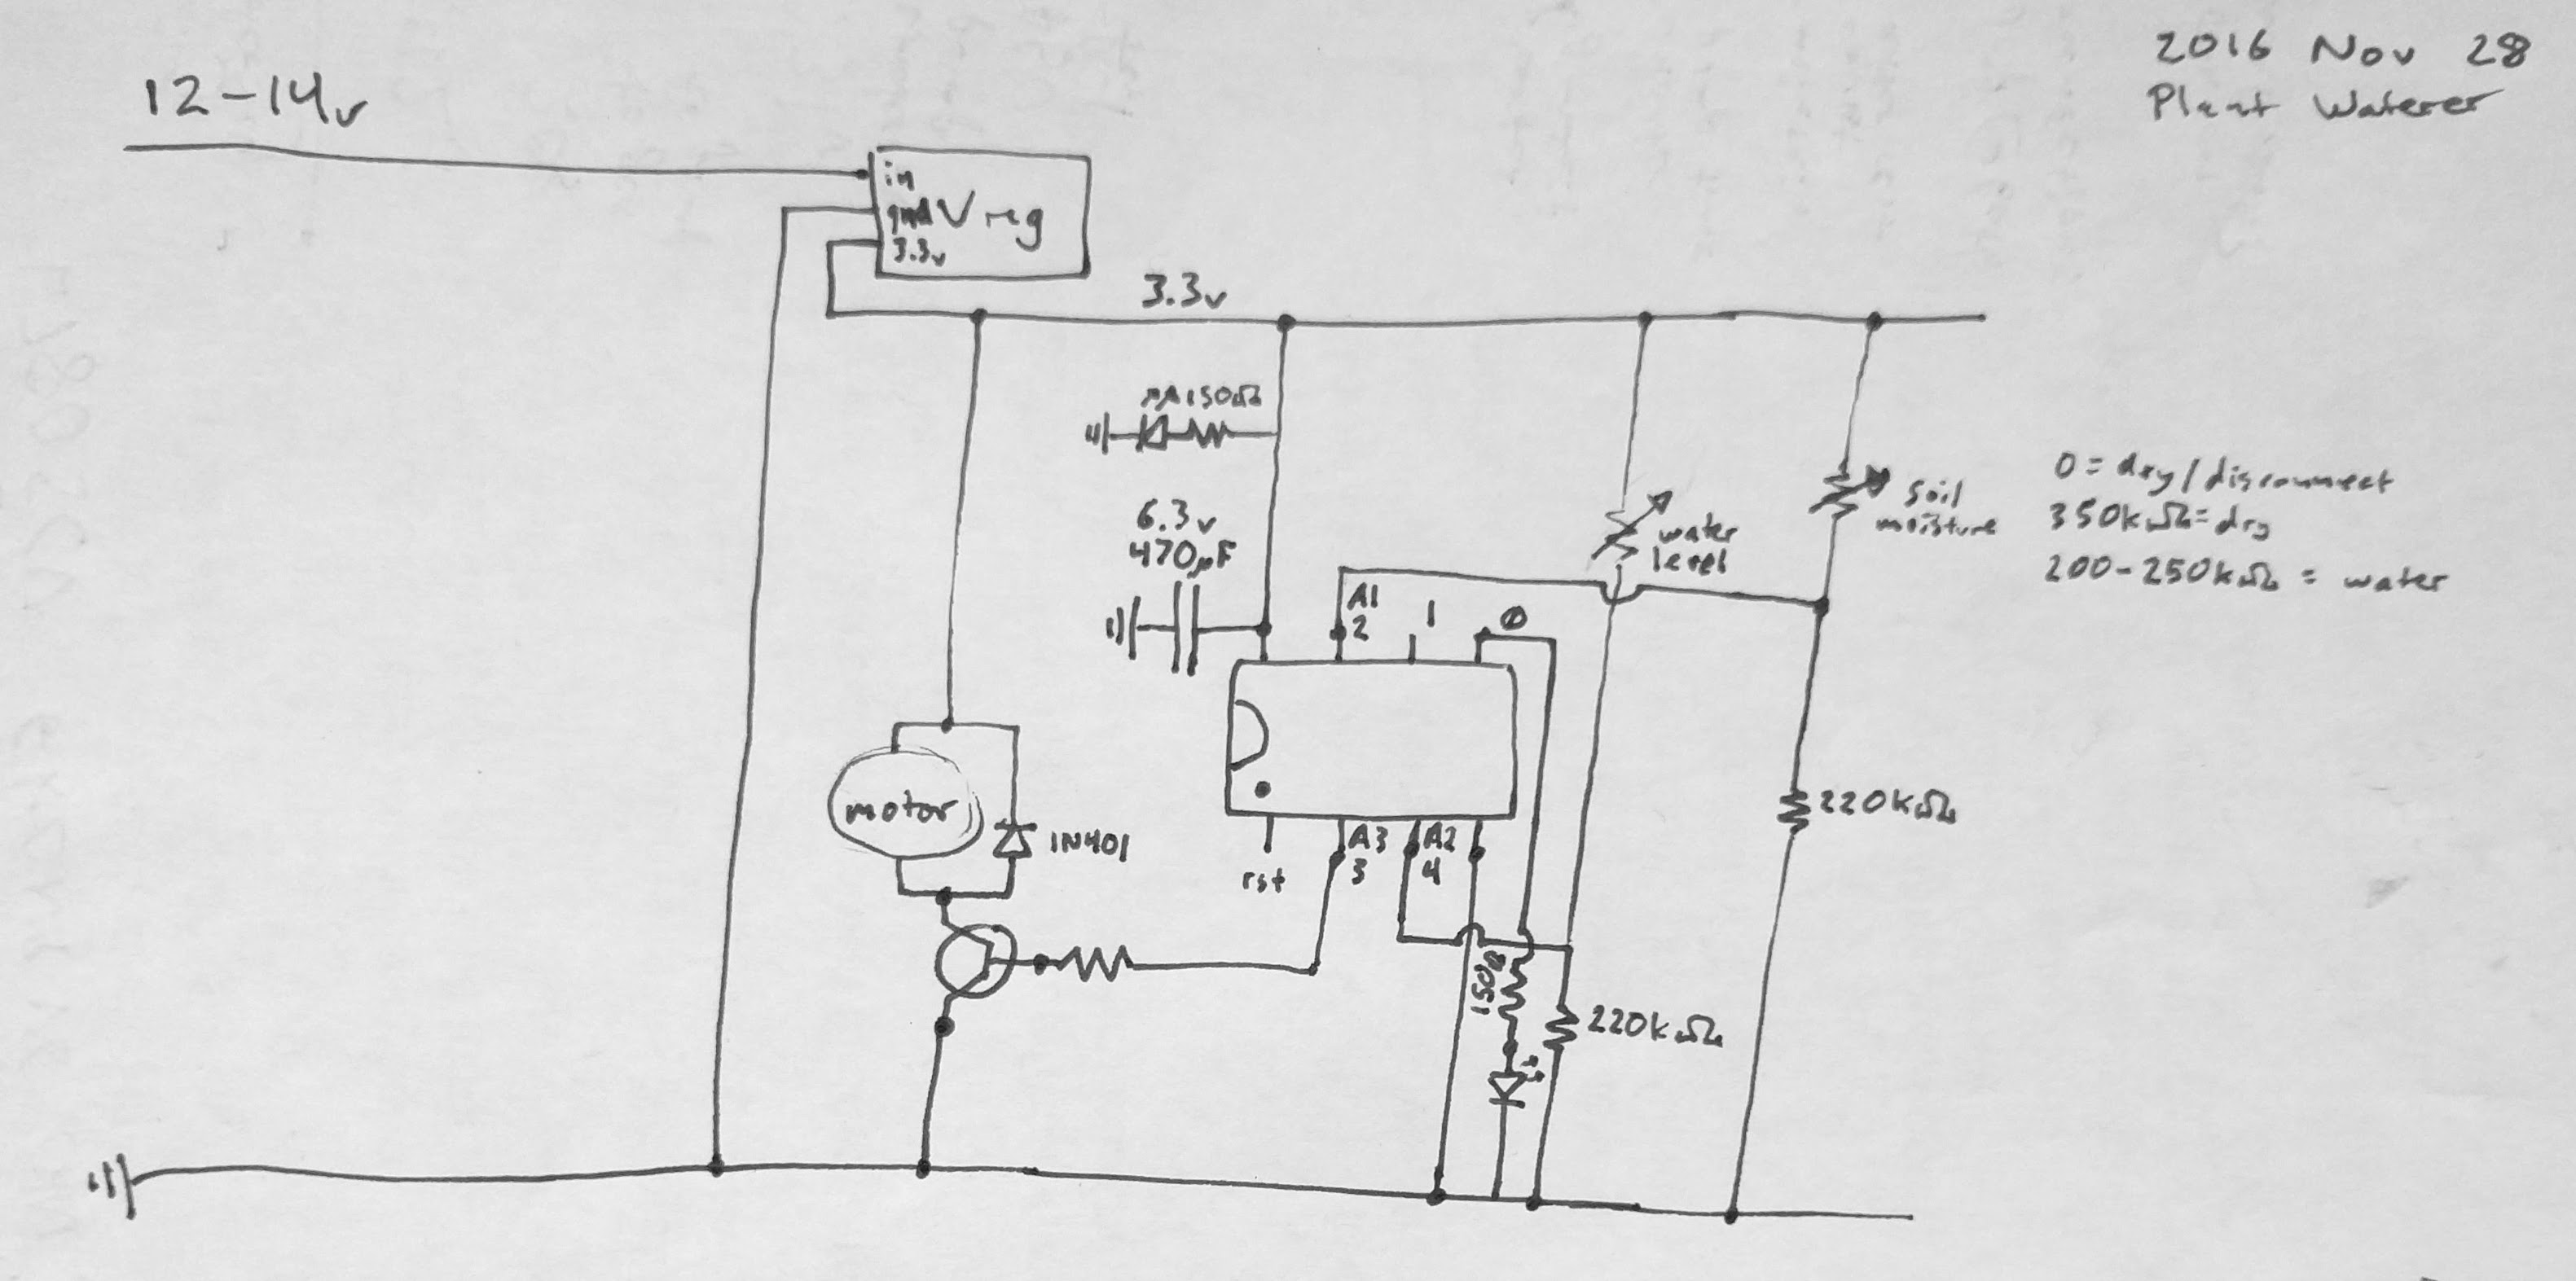 2016 Nov 28
Plant Waterer
12-14v
in
gnd
Vreg
3.3v
3.3v
150Ω
6.3v
470µF
water
level
soil
moisture
0 = dry/disconnect
350kΩ = dry
200-250kΩ = water
A1
2
1
0
motor
1N401
rst
A3
3
A2
4
220kΩ
150Ω
220kΩ